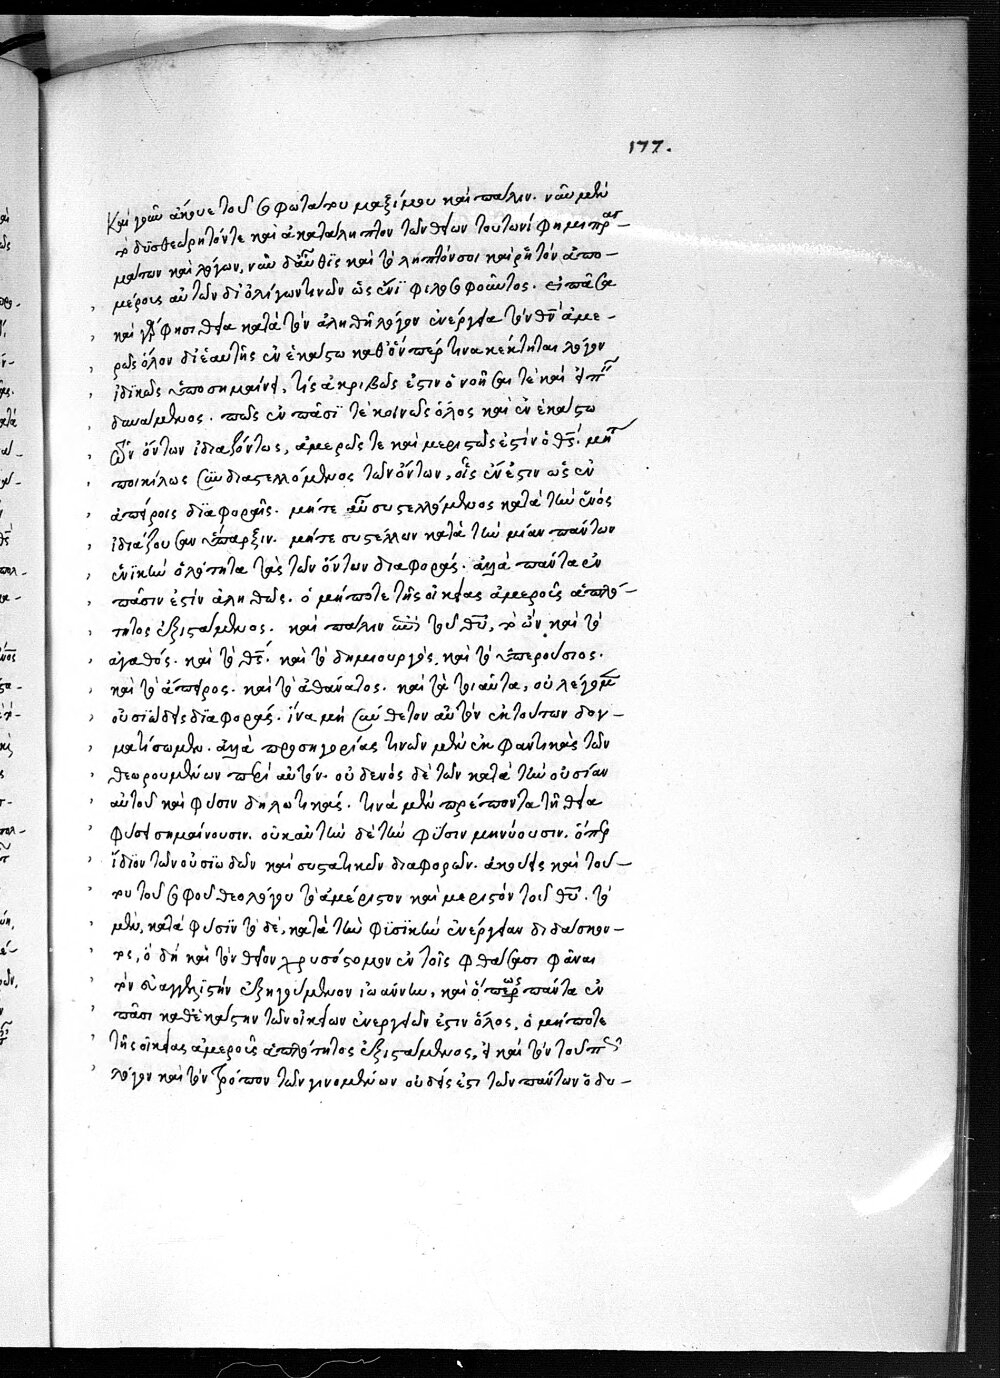 177.
καὶ γοῦν ἄκουε τοῦ σοφωτάτου μαξίμου καὶ πάλιν. νῦν μὲν
τὸ δυσθεώρητόν τε καὶ ἀκατάληπτον τῶν θείων τουτωνί φημι πραγ-
μάτων καὶ λόγων, νῦν δ' αὖθις καὶ τὸ ληπτόν σοι καὶ ῥητὸν ἀπο-
μέρους αὐτῶν δι' ὀλίγων τινῶν ὡς ἔνι φιλοσοφοῦντος. εἰ πᾶσα
καὶ γάρ φησι θεία κατὰ τὸν ἀληθῆ λόγον ἐνέργεια τὸν θν ἀμε-
ρῶς ὅλον δι' ἑαυτῆς ἐν ἑκάστω καθ' ὅνπέρ τινα κέκτηται λόγον
ἰδικῶς ὑποσημαίνει, τίς ἀκριβῶς ἐστιν ὁ νοῆσαι τὲ καὶ εἰπεῖν
δυνάμενος. πῶς ἐν πᾶσί τε κοινῶς ὅλος καὶ ἐν ἑκάστω
τῶν ὄντων ἰδιαζόντως, ἀμερῶς τε καὶ μεριστῶς ἐστὶν ὁ θς. μήτε
ποικίλως συνδιαστελλόμενος τῶν ὄντων, οἷς ἔνεστιν ὡς ἐν
ἀπείροις διαφοραῖς. μήτε αὖ συστελλόμενος κατὰ τὴν ἑνὸς
ἰδιάζουσαν ὕπαρξιν. μήτε συστέλλων κατὰ τὴν μίαν πάντων
ἑνικὴν ὁλότητα τὰς τῶν ὄντων διαφοράς. ἀλλὰ πάντα ἐν
πᾶσιν ἐστὶν ἀληθῶς. ὁ μήποτε τῆς οἰκείας ἀμεροῦς ἁπλό-
τητος ἐξιστάμενος. καὶ πάλιν περὶ τοῦ θυ, τὸ ὢν καὶ τὸ
ἀγαθός. καὶ τὸ θς. καὶ τὸ δημιουργός. καὶ τὸ ὑπερούσιος.
καὶ τὸ ἄπειρος. καὶ τὸ ἀθάνατος. καὶ τὰ τοιαῦτα, οὐ λέγομεν
οὐσιώδεις διαφοράς. ἵνα μὴ σύνθετον αὐτὸν ἐκ τούτων δογ-
ματίσωμεν. ἀλλὰ προσηγορίας τινῶν μὲν ἐκφαντικὰς τῶν
θεωρουμένων περὶ αὐτόν. οὐδενὸς δὲ τῶν κατὰ τὴν οὐσίαν
αὐτοῦ καὶ φύσιν δηλωτικάς. τινὰ μὲν πρέποντα τῆ θεία
φύσει σημαίνουσιν. οὐκ αὐτὴν δὲ τὴν φύσιν μηνύουσιν. ὅπερ
ἴδιον τῶν οὐσιωδῶν καὶ συστατικῶν διαφορῶν. ἀκούεις καὶ τού-
του τοῦ σοφοῦ θεολόγου τὸ ἀμέριστον καὶ μεριστὸν τοῦ θυ. τὸ
μὲν, κατὰ φύσιν τὸ δὲ, κατὰ τὴν φυσικὴν ἐνέργειαν διδάσκον-
τος, ὃ δὴ καὶ τὸν θεῖον χρυσόστομον ἐν τοῖς φθάσασι φᾶναι
τὸν εὐαγγελιστὴν ἐξηγούμενον ἰωάννην, καὶ ὅπως πάντα ἐν
πᾶσι καθ' ἑκάστην τῶν οἰκείων ἐνεργειῶν ἐστιν ὅλος, ὁ μήποτε
τῆς οἰκείας ἀμεροῦς ἁπλότητος ἐξιστάμενος, εἰ καὶ τὸν τούτου
λόγον καὶ τὸν τρόπον τῶν γινομένων οὐδείς ἐστι τῶν πάντων ὁ δυ-